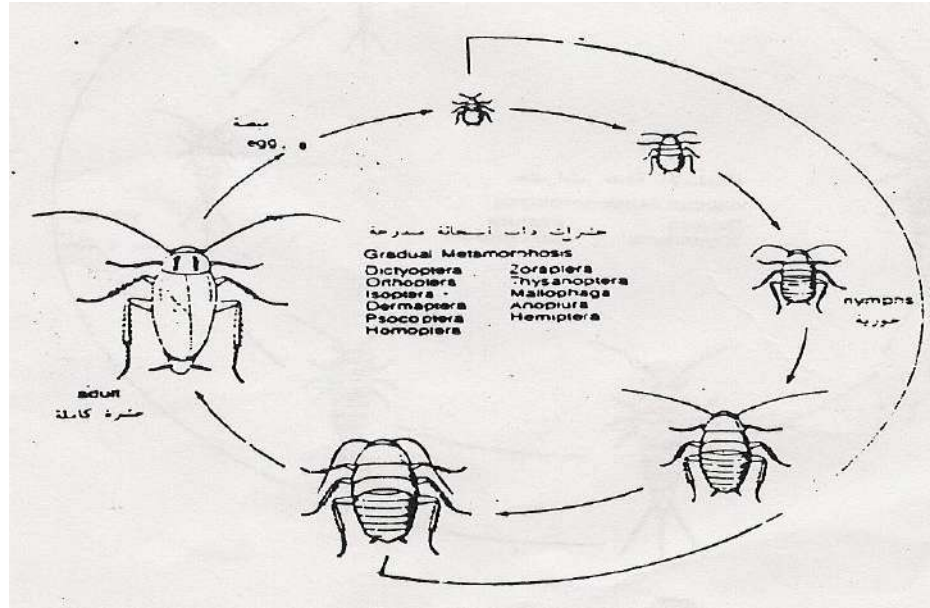 بيضة
egg
حشرات ذات استحالة متدرجة
Gradual Metamorphosis
Dictyoptera
Orthoptera
Isoptera
Dermaptera
Psocoptera
Homoptera
Zoraptera
Thysanoptera
Mallophaga
Anoplura
Hemiptera
nymphs
حورية
adult
حشرة كاملة